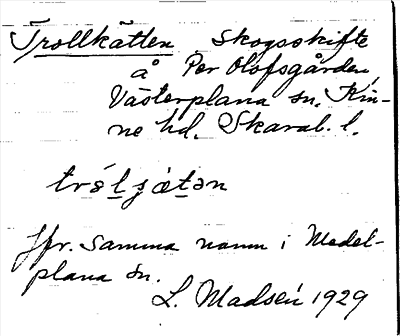 Trollkätten skogsskifte
å Per Olofsgården,
Västerplana sn. Kin-
ne hd. Skarab. l.
tról̲ʂæt̲ən
Jfr. samma namn i Medel-
plana sn.
L. Madsén 1929